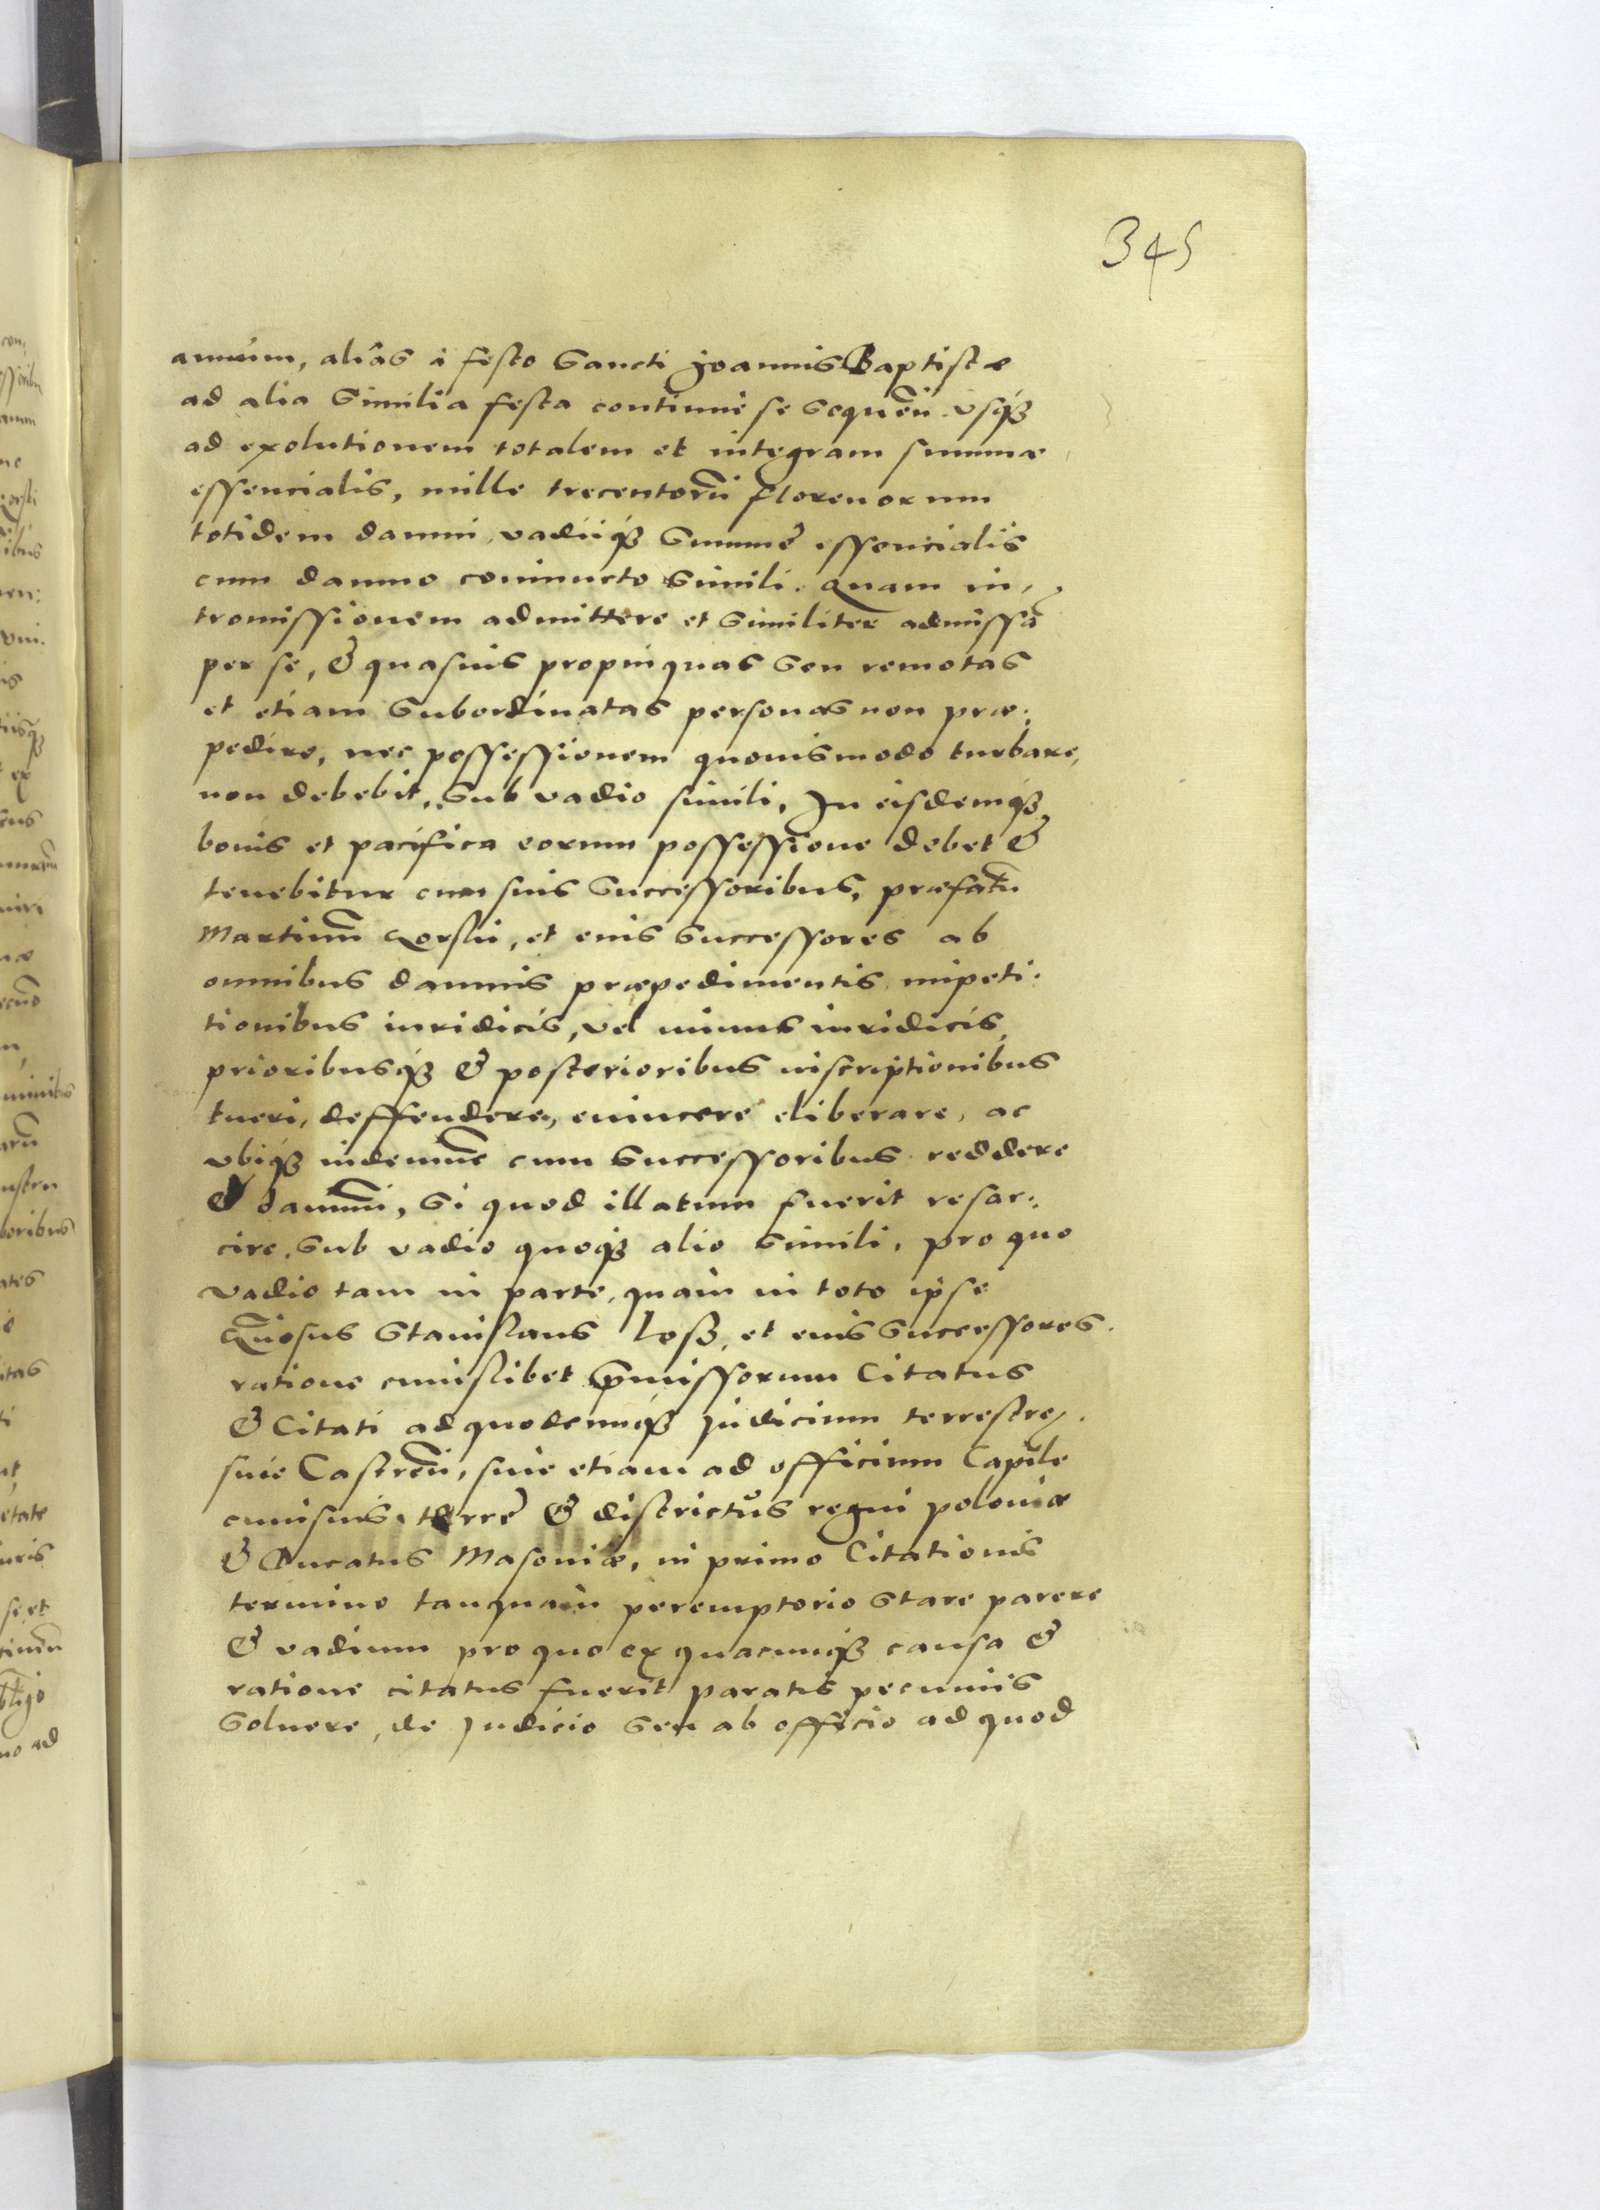 345
annum, aliâs â festo Sancti Joannis Baptistæ
ad alia Similia festa continuè se Sequen̄. vsq₃
ad exolutionem totalem et integram summæ
essencialis, mille trecentorū florenorum
totidem damni, vadiiq₃ Summę essencialis
cum damno coniuncto Simili. Quam in,
tromissionem admittere et Similiter admissā
per se, & quasuis propinquas Seu remotas
et etiam Subordinatas personas non præ:
pedire, nec possessionem quouismodo turbare,
non debebit, Sub vadio simili, In eisdemq₃
bonis et pacifica eorum possessione debet &
tenebitur cum suis Successoribus, præfatū
Martinū et eius Successores ab
omnibus damnis præpedimentis impeti:
tionibus iuridicis, vel minus iuridicis,
prioribusq₃ & posterioribus inscriptionibus
tueri, deffendere, euincere eliberare, ac
vbiq₃ indemnē cum Successoribus reddere
& damnū, Si quod illatum fuerit resar:
cire, Sub vadio quoq₃ alio Simili, pro quo
vadio tam in parte, quàm in toto ipse
Gn̄osus Stanislaus Losz, et eius Successores.
ratione cuiuslibet p̄missorum Citatus
& Citati ad quodcunq₃ Judicium terrestre,
siue Castren̄, siue etiam ad officium Cap̄le
cuiusuis, terrę & districtûs regni poloniæ
& Ducatus Masouiæ, in primo Citationis
termino tanquàm peremptorio Stare parere
& vadium pro quo ex quacunq₃ causa &
ratione citatus fuerit paratis pecuniis
Soluere, de Judicio Seu ab officio ad quod